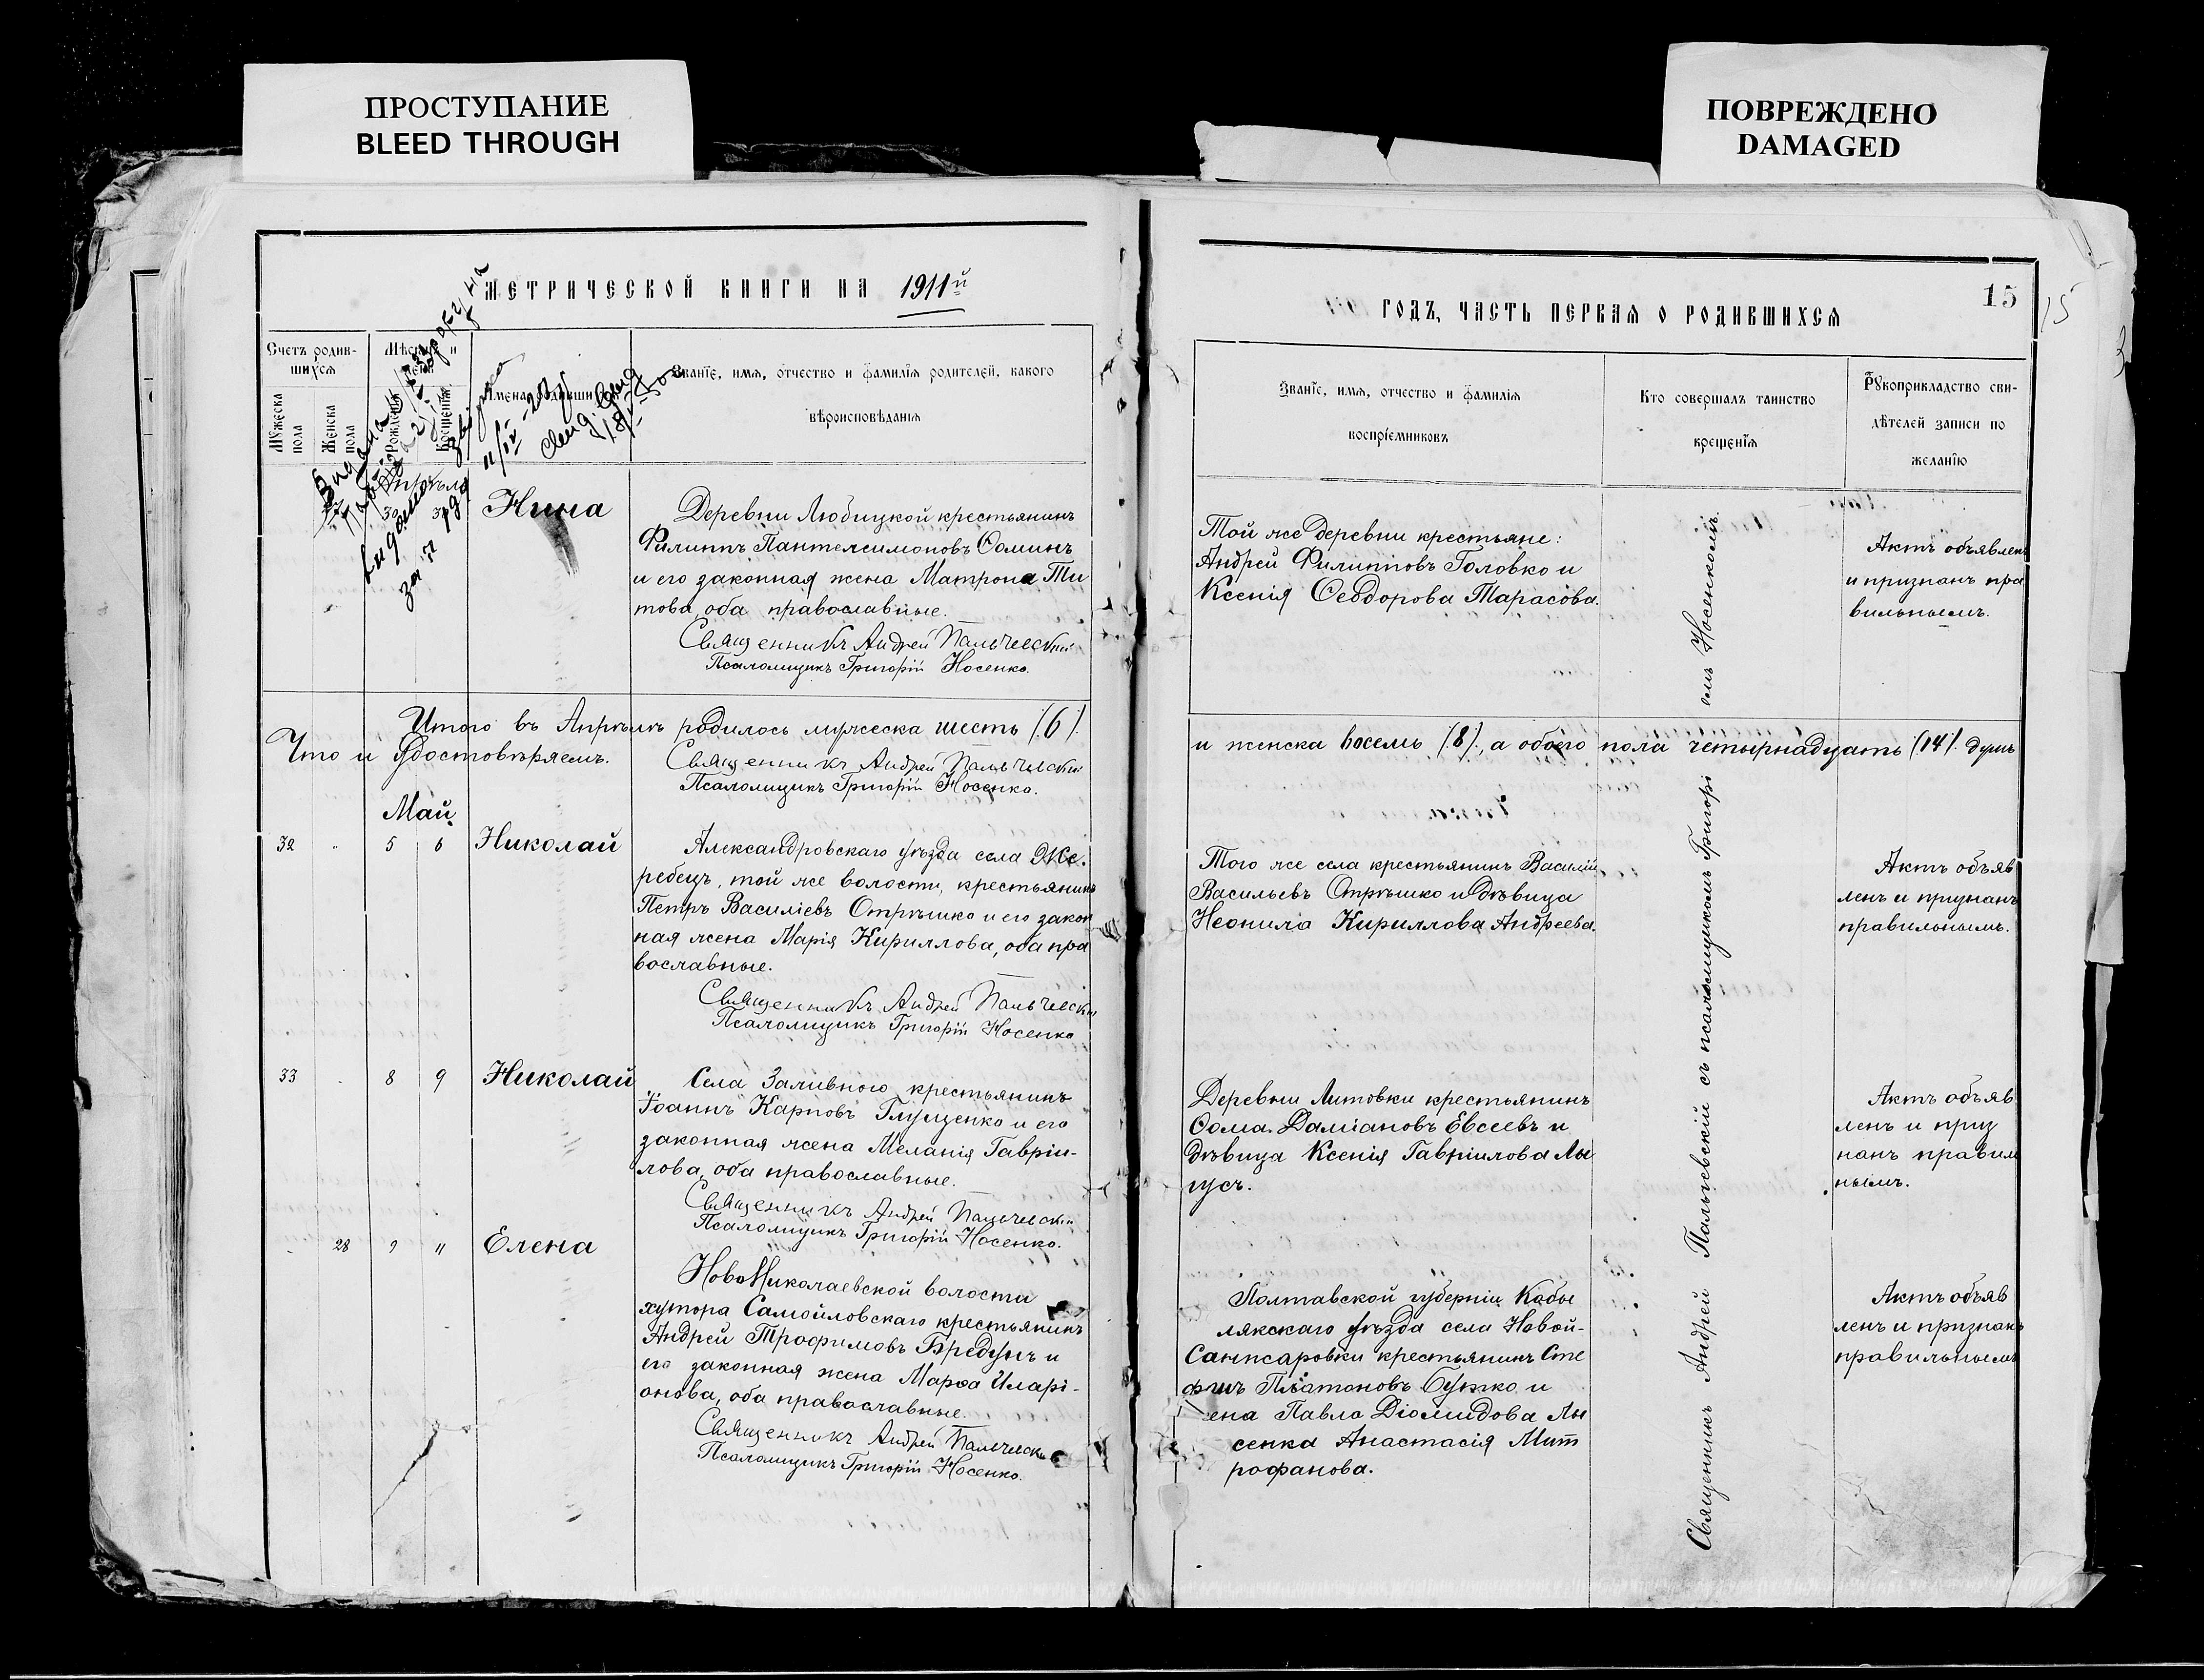 ПРОСТУПАНИЕ
BLEED THROUGH
ПОВРЕЖДЕНО
DAMAGED
МЕТРИЧЕСКОЙ КНИГИ НА 1911й
Счетъ родив-
шихся
Мужеска пола
Женска пола
Рожденія
Крещенія
Званіе, имя, отчество и фамилія родителей, какого
вѣроисповѣданія
30
Нина
Деревни Любицкой крестьянинъ
Филиппъ Пантелеимоновъ Ѳоминъ
и его законная жена Матрона Ти
това, оба православные.
Священникъ Андрей Пальчевскій
Псаломщикъ Григорій Носенко.
Итого въ Апрѣлѣ родилось мужеска шесть (6).
Что и удостовѣряемъ.
Священникъ Андрей Пальчевскій
Псаломщикъ Григорій Носенко.
Май.
32 " 5 6 Николай
Александровскаго уѣзда села Же-
ребецъ, той же волости, крестьянинъ
Петръ Василіевъ Отрѣшко и его закон
ная жена Марія Кириллова, оба пра
вославные.
Священникъ Андрей Пальчевскій
Псаломщикъ Григорій Носенко
33 8 9 Николай
Села Заливного крестьянинъ
Іоаннъ Карповъ Глущенко и его
законная жена Меланія Гавріи-
лова, оба православные.
Священникъ Андрей Пальчевскій
Псаломщикъ Григорій Носенко.
28 9 11 Елена
НовоНиколаевской волости
хутора Самойловскаго крестьянинъ
Андрей Трофимовъ Бредунъ и
его законная жена Марѳа Иларі-
онова, оба православные.
Священникъ Андрей Пальчевскій
Псаломщикъ Григорій Носенко.
15
15
3
ГОДЪ, ЧАСТЬ ПЕРВАЯ О РОДИВШИХСЯ
Званіе, имя, отчество и фамилія
воспріемниковъ
Кто совершалъ таинство
крещенія
Рукоприкладство сви-
дѣтелей записи по
желанію
Той же деревни крестьяне:
Андрей Филиповъ Головко и
Ксенія Ѳеодорова Тарасова.
Актъ объявленъ
и признанъ пра
вильнымъ.
и женска восемь (8), а обоего пола четырнадцать (14). душъ
Того же села крестьянинъ Василій
Васильевъ Отрѣшко и дѣвица
Неонила Кириллова Андреева.
Актъ объяв
ленъ и признанъ
правильнымъ.
Деревни Литовки крестьянинъ
Ѳома Даміановъ Евсеевъ и
дѣвица Ксенія Гавріилова Лы
гусъ.
Актъ объяв
ленъ и приз
нанъ правил
нымъ.
Полтавской губерніи Кобы
лякскаго уѣзда села Новой-
Санжаровки крестьянинъ Сте
фанъ Платоновъ и
жена Павла Діомидова Лы
сенка Анастасія Мит
рофанова.
Актъ объяв
ленъ и признанъ
правильнымъ
Священникъ Андрей Пальчевскій съ псаломщикомъ Григоріемъ Носенкомъ.